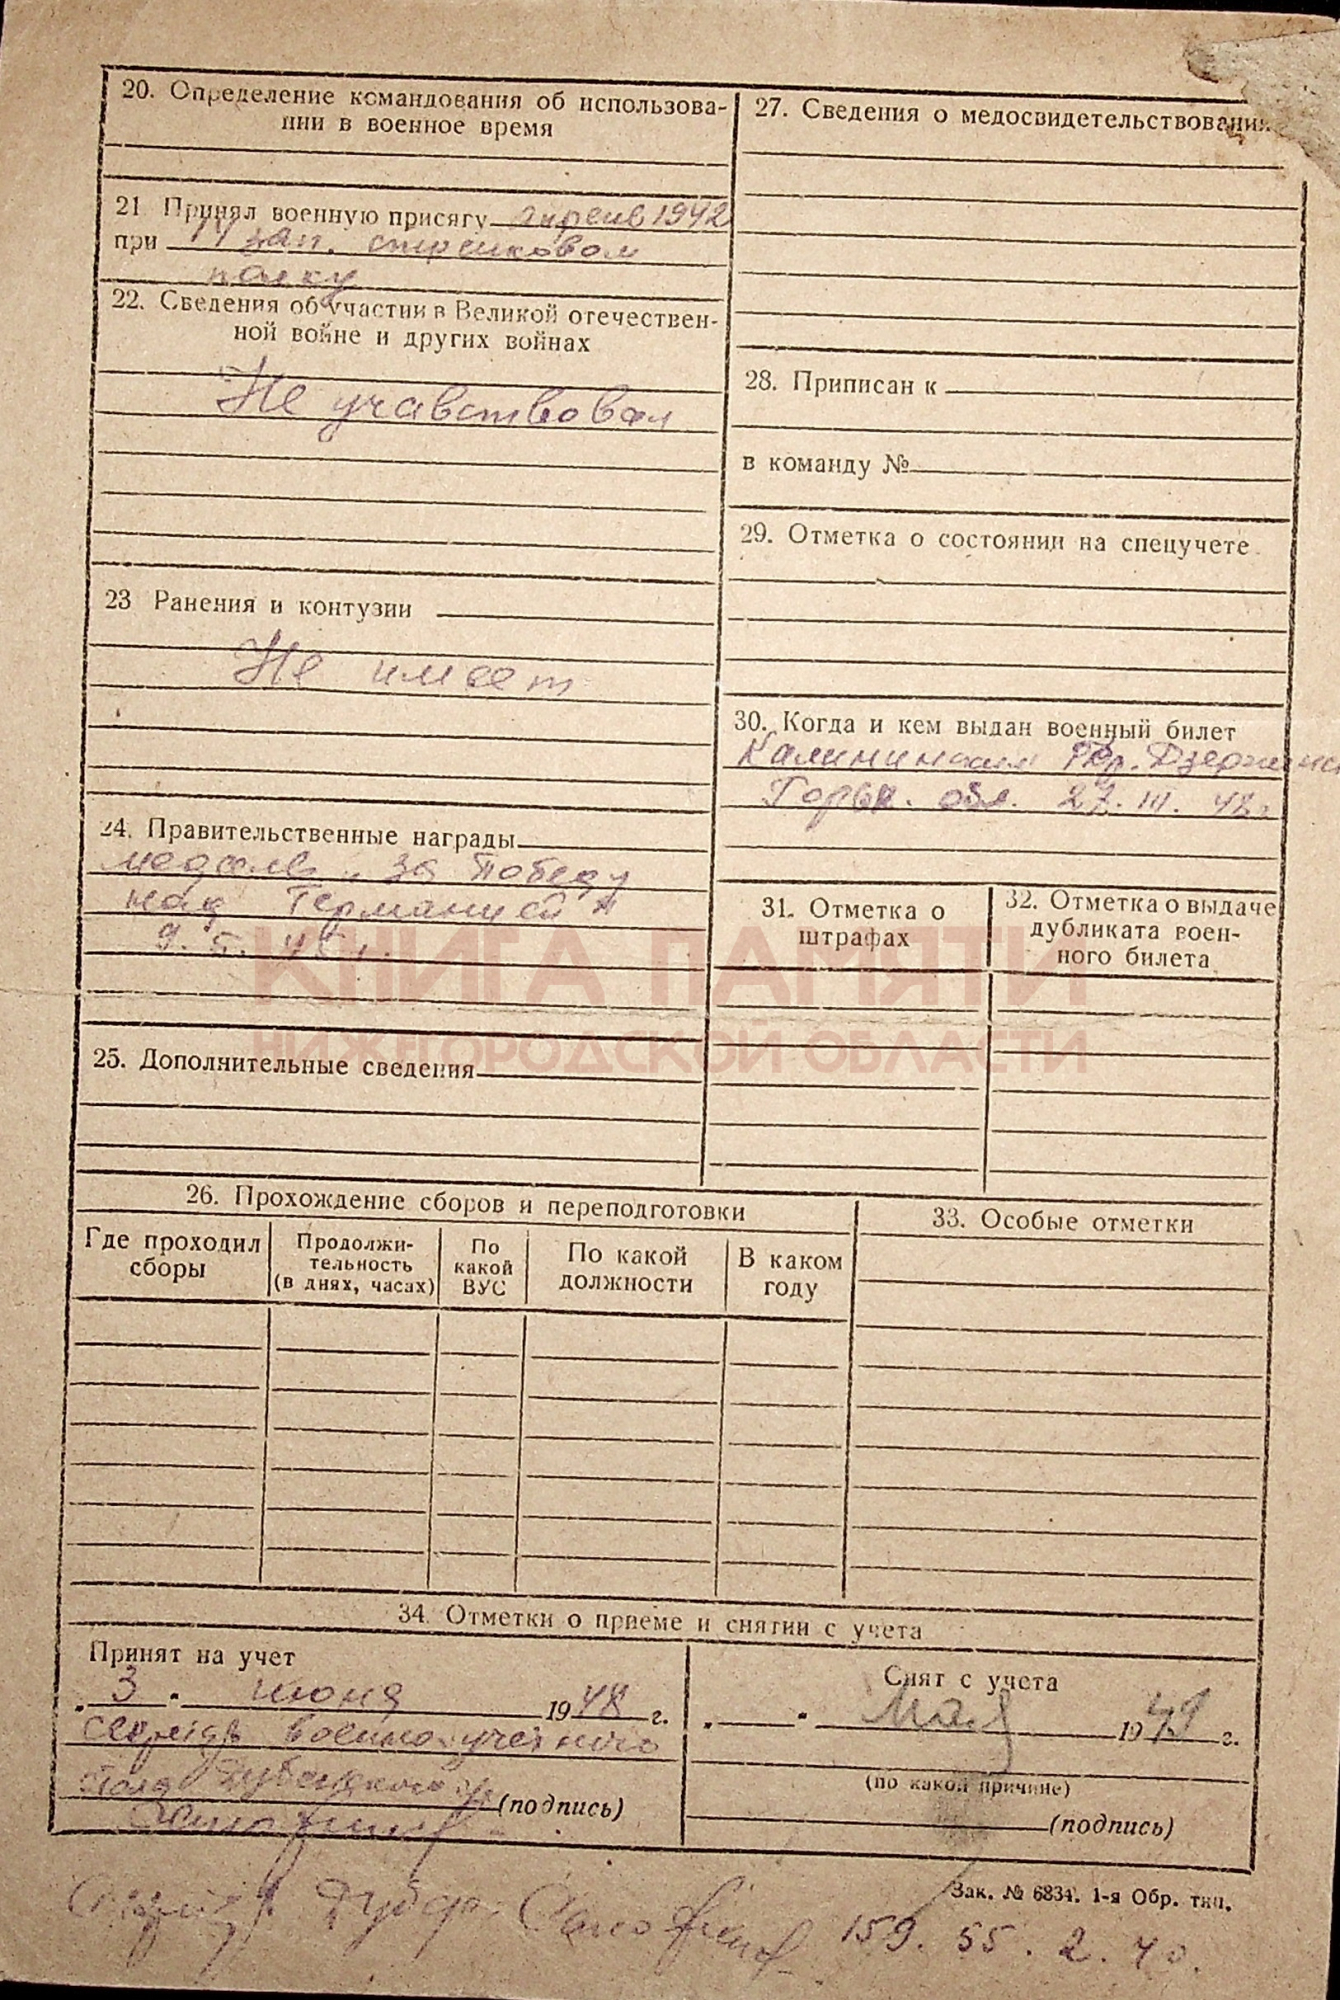 20. Определение командования об использова-
нии в военное время
21 Принял военную присягу апрель 1942
при зап. стрелковом
полку
22. Сведения об участии в Великой отечествен-
ной войне и других войнах
Не учавствовал
23 Ранения и контузии
Не имеет
24. Правительственные награды
медаль „За победу
над Германией"
9. 5. 45 г.
25. Дополнительные сведения
27. Сведения о медосвидетельствовании
28. Приписан к
в команду №
29. Отметка о состоянии на спецучете
30. Когда и кем выдан военный билет
Калининским Дзержинск
Горьк. обл. 27. III. 48 г
31. Отметка о
штрафах
32. Отметка о выдаче
дубликата воен-
ного билета
КНИГА ПАМЯТИ
НИЖЕГОРОДСКОЙ ОБЛАСТИ
26. Прохождение сборов и переподготовки
Где проходил
сборы
Продолжи-
тельность
(в днях, часах)
По
какой
ВУС
По какой
должности
В каком
году
33. Особые отметки
34. Отметки о приеме и снятии с учета
Принят на учет
„ 3 " июня 1948 г.
военно-учетного
стола Дубенского
(подпись)
Снят с учета
„ " Мая 1949 г.
(по какой причине)
(подпись)
Зак. № 6834. 1-я Обр. тип.
159. 55. 2. 40.